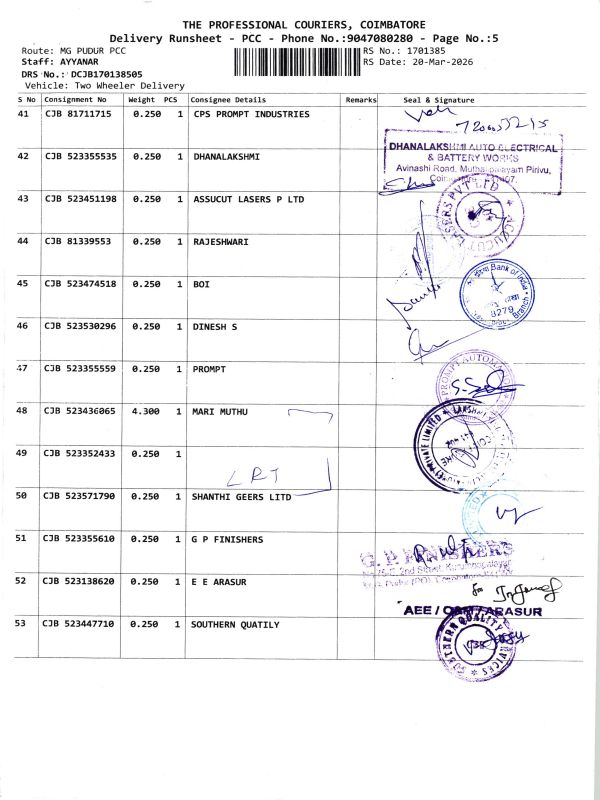 THE PROFESSIONAL COURIERS, COIMBATORE
Delivery Runsheet - PCC - Phone No.:9047080280 - Page No.:5
Route: MG PUDUR PCC
RS No.: 1701385
Staff: AYYANAR
RS Date: 20-Mar-2026
DRS No.: DCJB170138505
Vehicle: Two Wheeler Delivery
S No Consignment No Weight PCS Consignee Details Remarks Seal & Signature
41 CJB 81711715 0.250 1 CPS PROMPT INDUSTRIES
42 CJB 523355535 0.250 1 DHANALAKSHMI
DHANALAKSHMI AUTO ELECTRICAL
& BATTERY WORKS
Avinashi Road, Muthalipalayam Pirivu,
43 CJB 523451198 0.250 1 ASSUCUT LASERS P LTD
ACCUCUT LASERS PVT LTD
44 CJB 81339553 0.250 1 RAJESHWARI
45 CJB 523474518 0.250 1 BOI
Bank of India
Branch
8279
46 CJB 523530296 0.250 1 DINESH S
47 CJB 523355559 0.250 1 PROMPT
PROMPT AUTOMATION
48 CJB 523436065 4.300 1 MARI MUTHU
PRIVATE LIMITED
49 CJB 523352433 0.250 1
LRT
50 CJB 523571790 0.250 1 SHANTHI GEERS LITD
51 CJB 523355610 0.250 1 G P FINISHERS
G. P. FINISHERS
2nd Street
52 CJB 523138620 0.250 1 E E ARASUR
For
AEE / O&M / ARASUR
53 CJB 523447710 0.250 1 SOUTHERN QUATILY
SOUTHERN QUALITY SERVICES